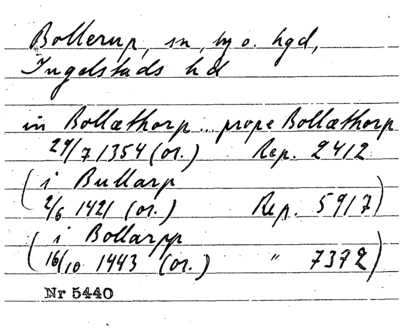 Bollerup, sn, by o. hgd,
Ingelstads hd
in Bollæthorp... prope Bollæthorp
29/7 1354 (or.) Rep. 2412
(i Bullarp
2/6 1421 (or.) Rep. 5917)
(i Bollarpp
16/10 1443 (or.) " 7372)
Nr 5440